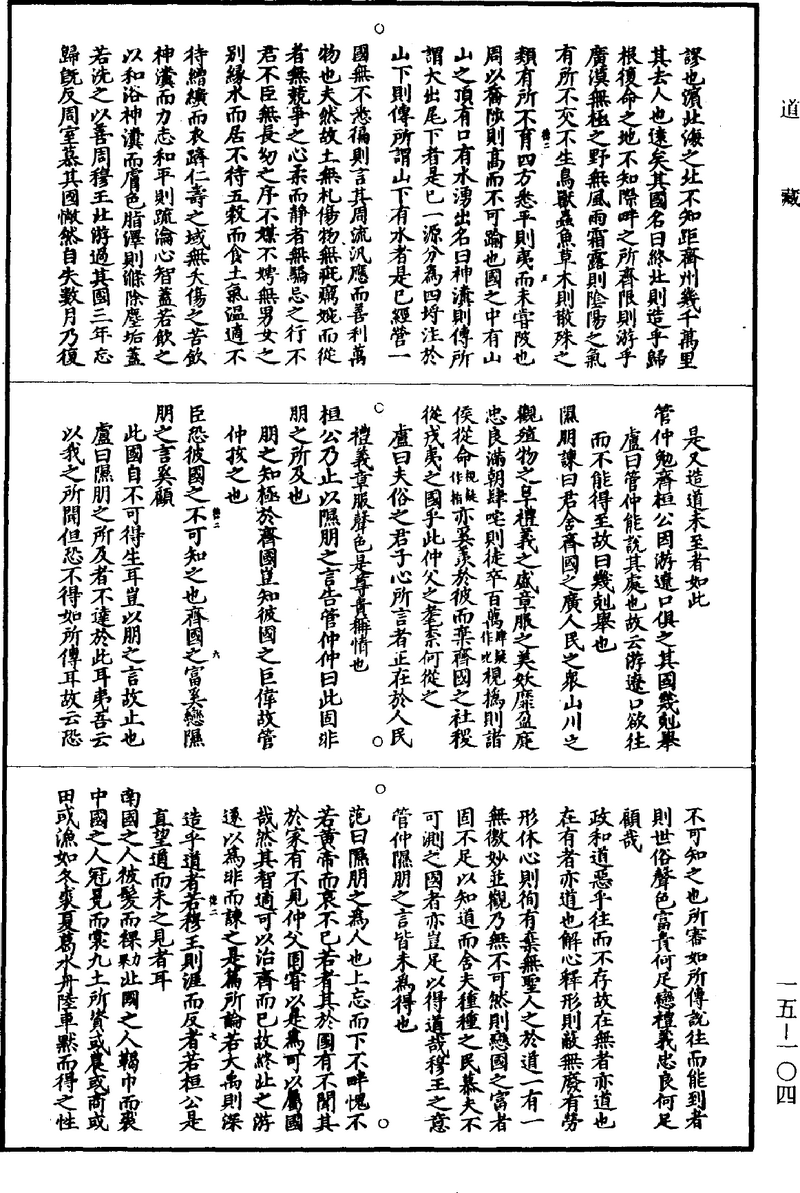 道藏
謬也濱北海之北不知距齊州幾千萬里
其去人也遠矣其國名曰終北則造乎歸
根復命之地不知際畔之所齊限則游乎
廣漠無極之野無風雨霜露則陰陽之氣
有所不交不生鳥獸蟲魚草木則散殊之
類有所不育四方悉平則夷而未嘗陂也
周以喬陟則高而不可踰也國之中有山
山之頂有口有水湧出名曰神瀵則傳所
謂大出尾下者是已一源分為四埒注於
山下則傳所謂山下有水者是已經營一
國無不悉徧則言其周流汎應而善利萬
物也夫然故土無札傷物無疵癘婉而從
者無競爭之心柔而靜者無驕忌之行不
君不臣無長幼之序不媒不娉無男女之
別緣水而居不待五穀而食土氣溫適不
待繒纊而衣躋仁壽之域無夭傷之苦飲
神瀵而力志和平則疏瀹心智蓋若飲之
以和浴神瀵而膚色脂澤則滌除塵垢蓋
若洗之以善周穆王北游過其國三年忘
歸既反周室慕其國慨然自失數月乃復
是又造道未至者如此
管仲勉齊桓公因游遼口俱之其國幾剋舉
盧曰管仲能說其處也故云游遼口欲往
而不能得至故曰幾剋舉也
隰朋諫曰君舍齊國之廣人民之衆山川之
觀殖物之阜禮義之盛章服之美妖靡盈庭
忠良滿朝肆咤則徒卒百萬肆疑作叱視撝則諸
侯從命視疑作指亦奚羨於彼而棄齊國之社稷
從戎夷之國乎此仲父之耄柰何從之
盧曰夫俗之君子心所言者正在於人民
禮義章服聲色是尊貴稱情也
桓公乃止以隰朋之言告管仲仲曰此固非
朋之所及也
朋之知極於齊國豈知彼國之巨偉故管
仲抆之也
臣恐彼國之不可知之也齊國之富奚戀隰
朋之言奚顧
此國自不可得生耳豈以朋之言故止也
盧曰隰朋之所及者不達於此耳夷吾云
以我之所聞但恐不得如所傳耳故云恐
不可知之也所審如所傳說往而能到者
則世俗聲色富貴何足戀禮義忠良何足
顧哉
政和道惡乎往而不存故在無者亦道也
在有者亦道也解心釋形則敝無廢有勞
形休心則徇有棄無聖人之於道一有一
無徼妙並觀乃無不可然則戀國之富者
固不足以知道而舍夫種種之民慕夫不
可測之國者亦豈足以得道哉穆王之意
管仲隰朋之言皆未為得也
范曰隰朋之為人也上忘而下不畔愧不
若黃帝而哀不己若者其於國有不聞其
於家有不見仲父固嘗以是為可以屬國
哉然其智適可以治齊而已故終北之游
遂以為非而諫之是篇所論若大禹則深
造乎道者若穆王則涯而反者若桓公是
直望道而未之見者耳
南國之人被髮而裸北國之人鞨巾而裘
中國之人冠冕而裳九土所資或農或商或
田或漁如冬裘夏葛水舟陸車默而得之性
一五—一〇四